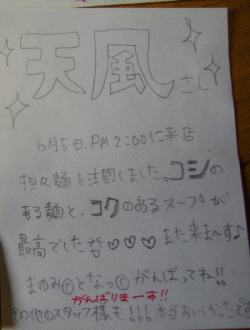 天風さん
6月5日、PM2:00に来店
担々麺を注文しました。コシの
ある麺と、コクのあるスープが
最高でした♡♡♡また来ま〜す♪
まゆみⒸとなつⒸがんばってね!!
がんばりまーす!!
その他のスタッフ様も!!!本当おいしかったです